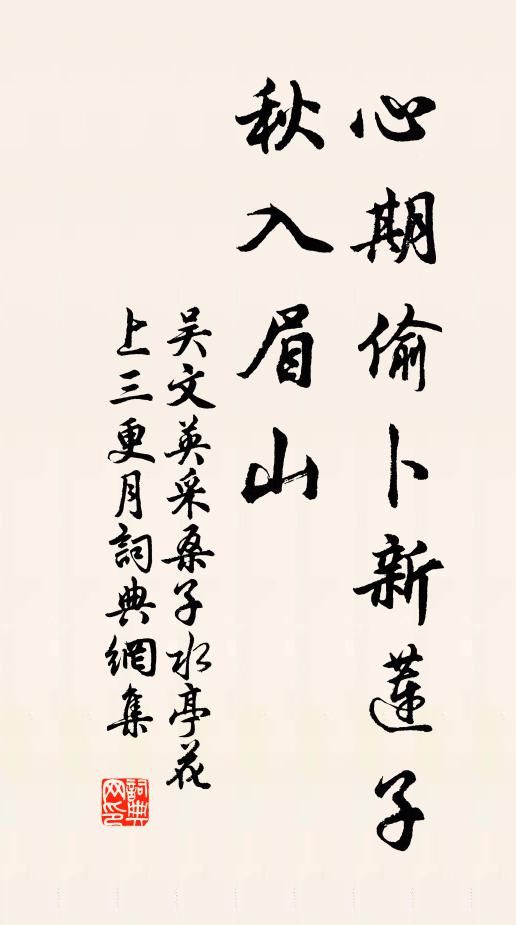 心期偷卜新蓮子
秋入眉山
吴文英采桑子水亭花
上三更月詞典網集
詞典网印